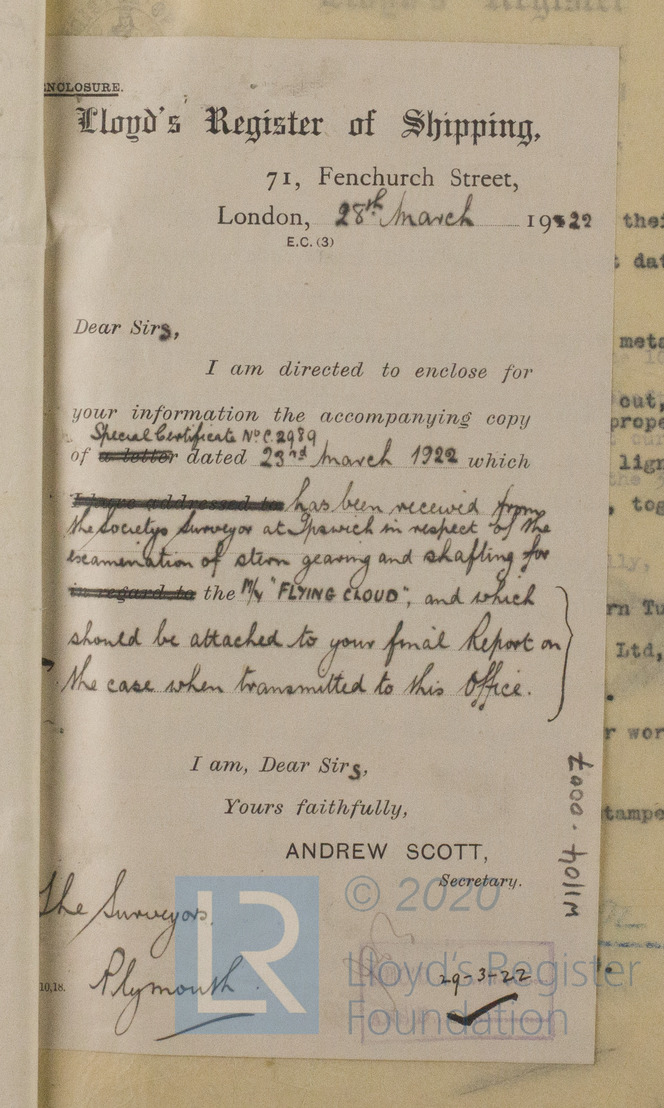 ENCLOSURE.
Lloyd's Register of Shipping,
71, Fenchurch Street,
London, 28th March 1922
E.C. (3)
Dear Sirs,
I am directed to enclose for
your information the accompanying copy
Special Certificate No C.2989
of a letter dated 23rd March 1922 which
I have addressed to has been received from
the Societys Surveyor at Ipswich in respect of the
examination of stern gearing and shafting for
in regard to the M/V "FLYING CLOUD", and which
should be attached to your final Report on
the case when transmitted to this Office.
I am, Dear Sirs,
Yours faithfully,
ANDREW SCOTT,
Secretary.
The Surveyors
Plymouth.
10,18.
29-3-22
W1104-0007
LR
© 2020
Lloyd's Register
Foundation
thei
t dat
meta
out,
prope
lign
, tog
rn Tu
Ltd,
r wor
tampe